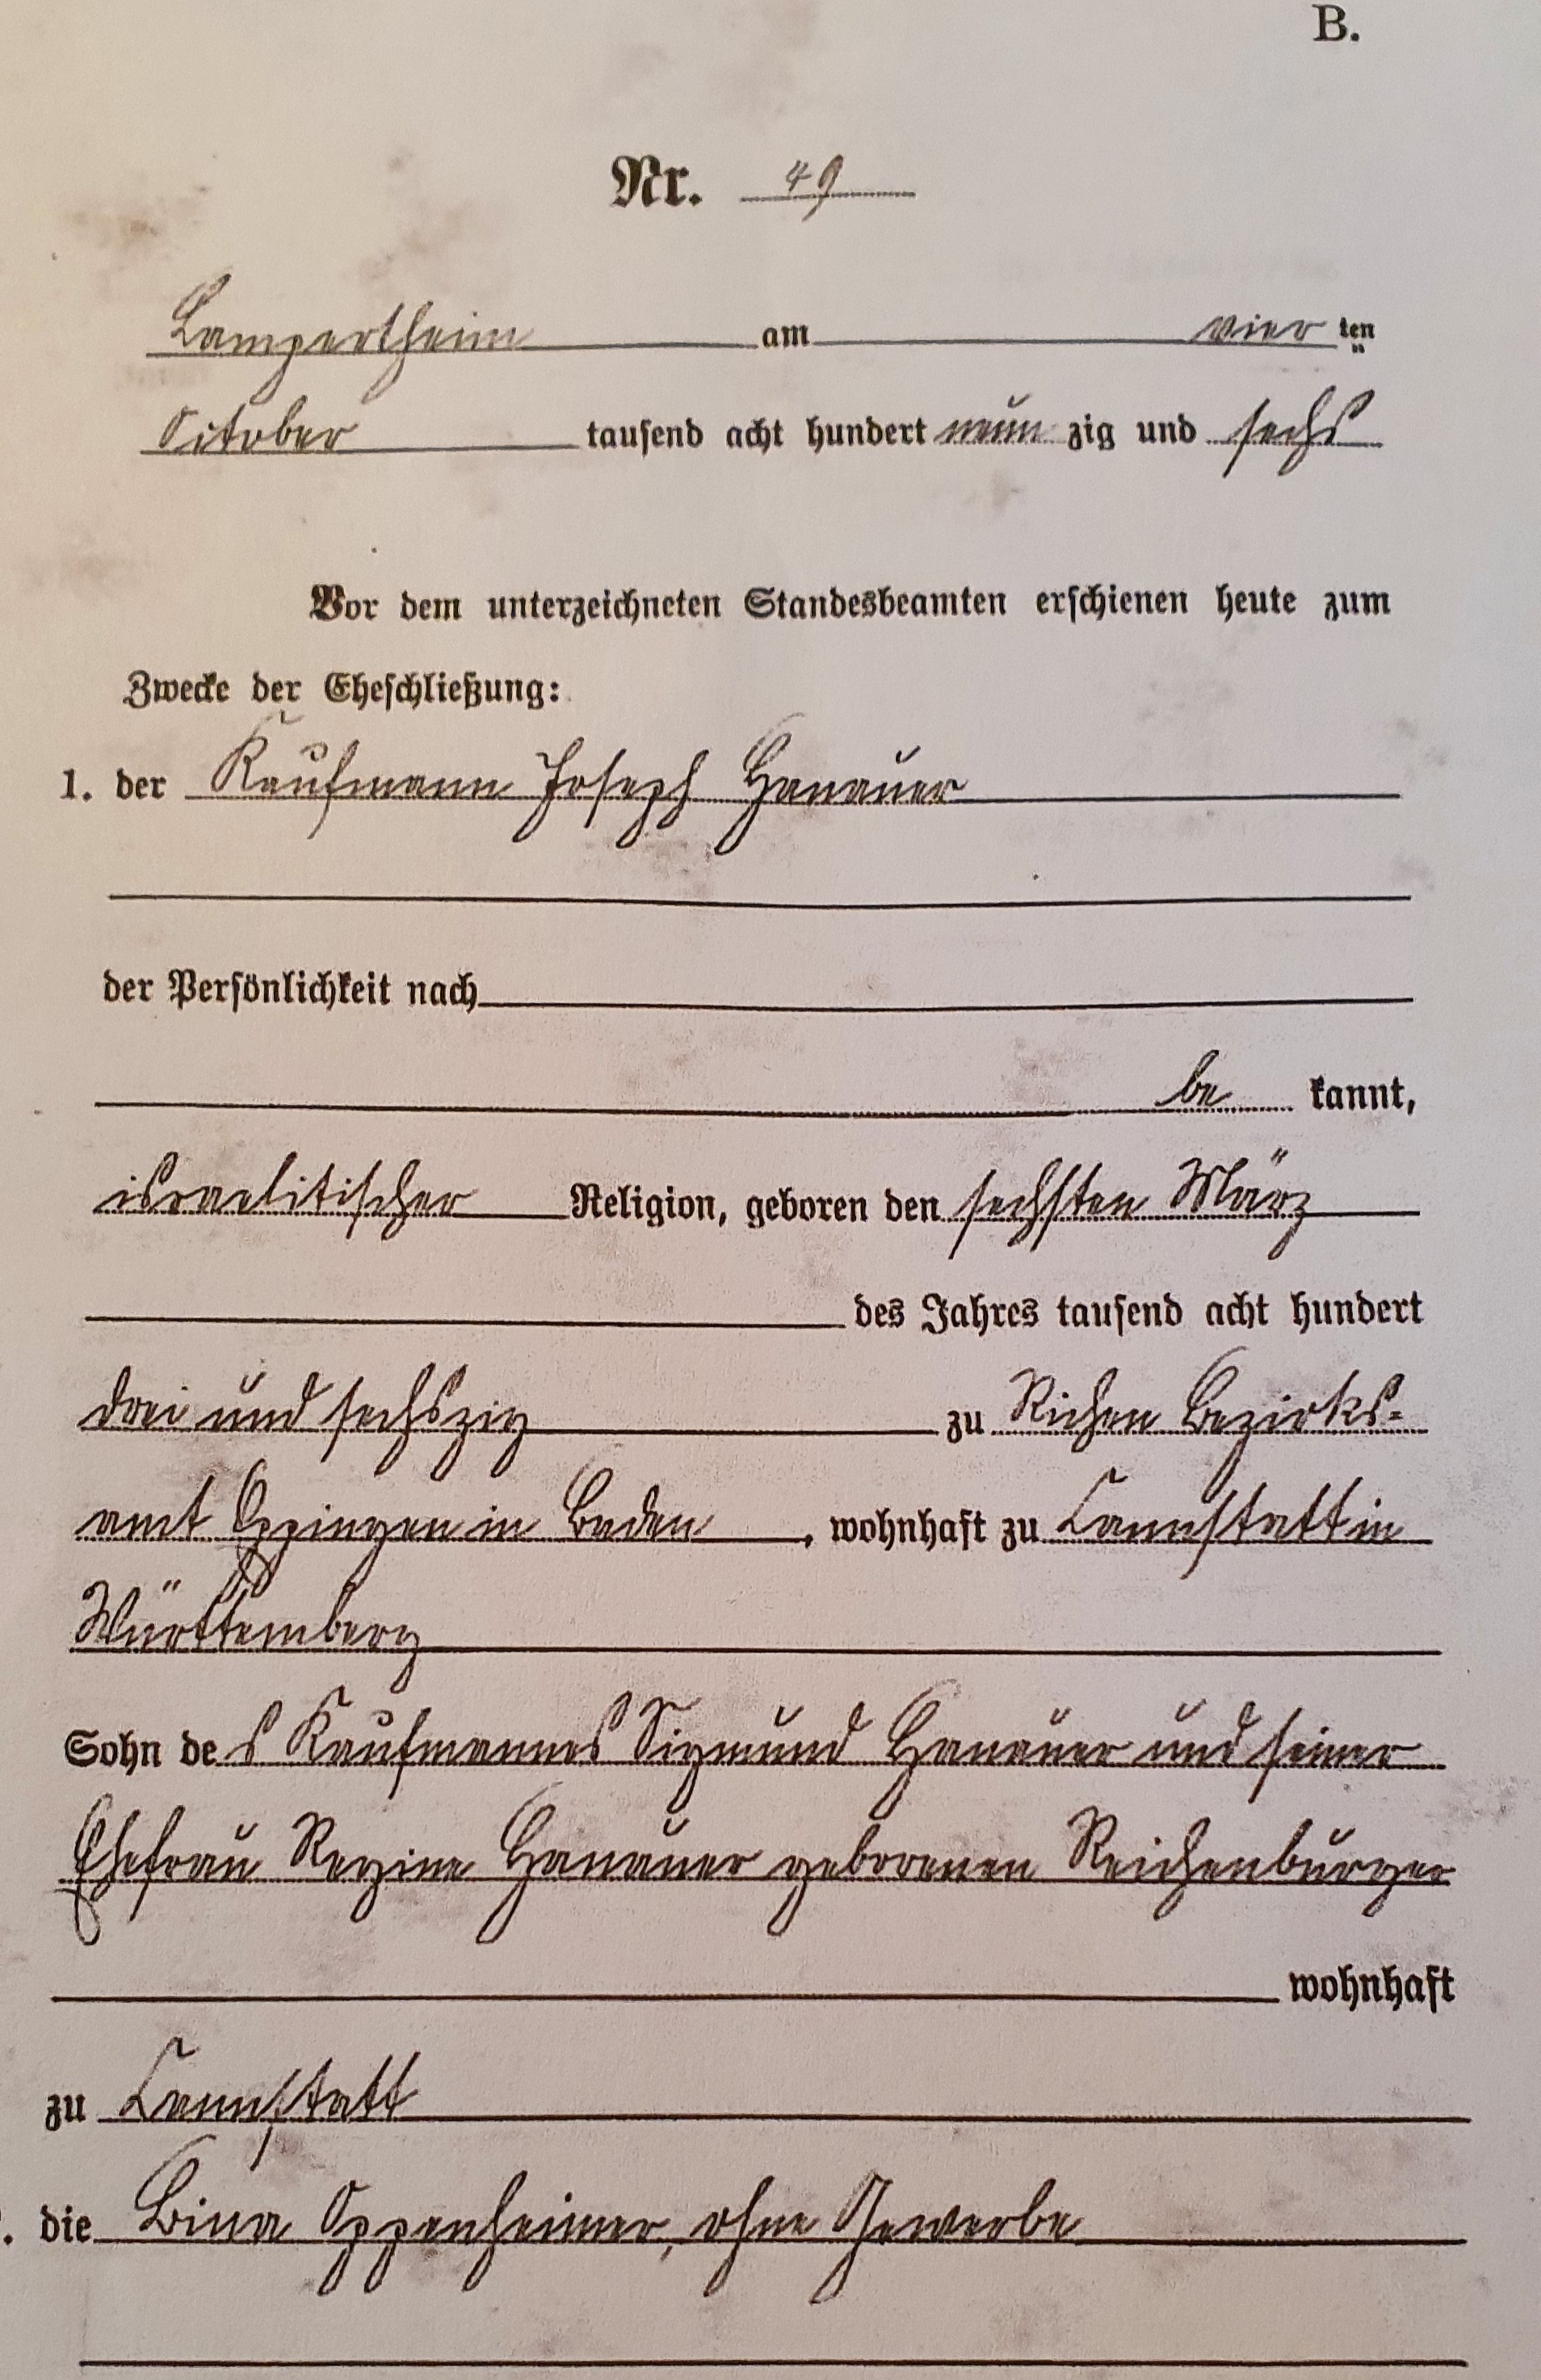 B.
Nr. 49
Lampertheim am vier ten
October tausend acht hundert neun zig und sechs
Vor dem unterzeichneten Standesbeamten erschienen heute zum
Zwecke der Eheschließung:
1. der Kaufmann Joseph Hanauer
der Persönlichkeit nach
be kannt,
israelitischer Religion, geboren den sechsten März
des Jahres tausend acht hundert
drei und sechszig zu Richen Bezirks=
amt Eppingen in Baden, wohnhaft zu Cannstatt in
Württemberg
Sohn de s Kaufmannes Sigmund Hanauer und seiner
Ehefrau Regine Hanauer geborenen Reichenburger
wohnhaft
zu Cannstatt
. die Bina Oppenheimer, ohne Gewerbe